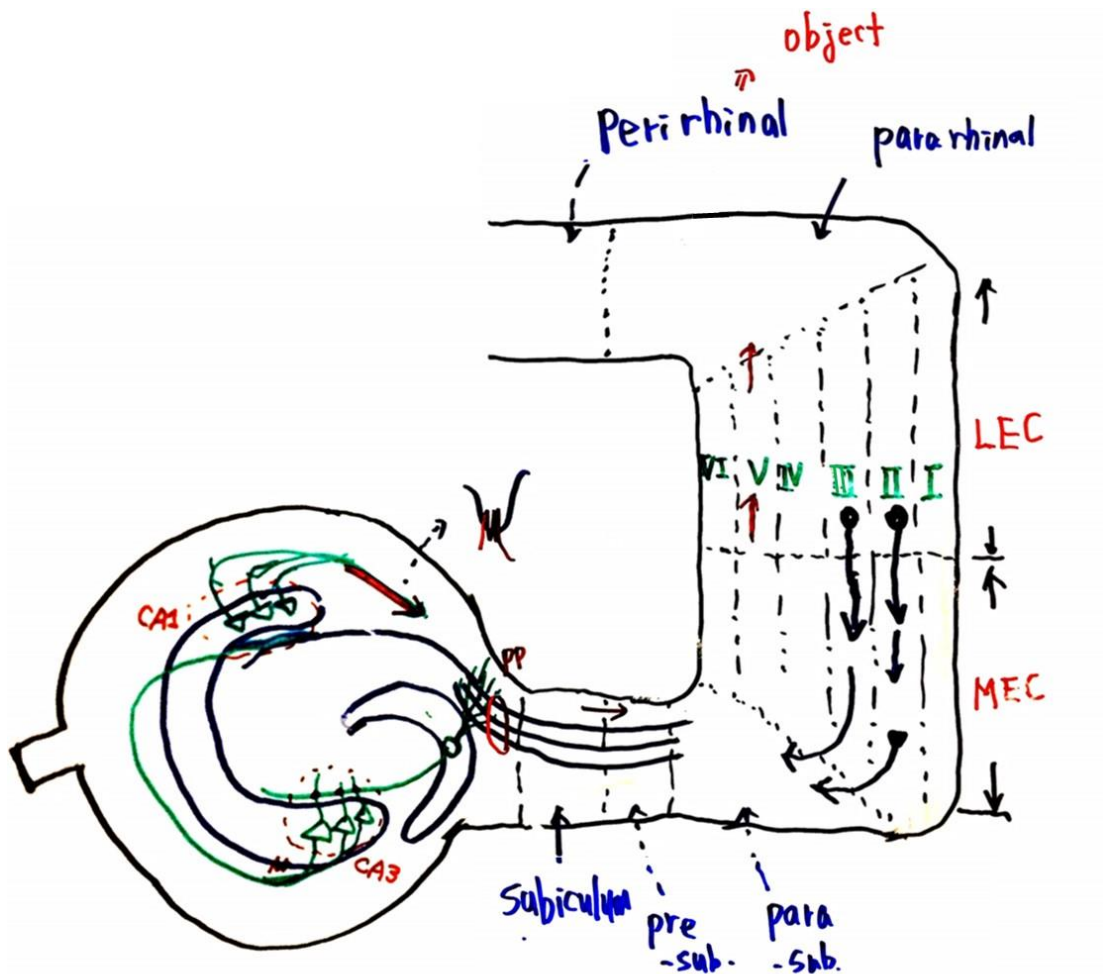 object
Perirhinal
pararhinal
LEC
VI V IV III II I
CA1
PP
MEC
CA3
Subiculum
pre
-sub.
para
-sub.